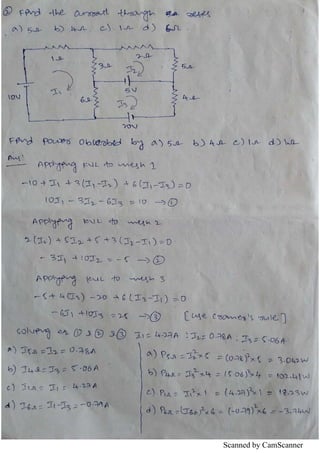 ② Find the current through res
a) 5Ω b) 4Ω c) 1Ω d) 6Ω
1Ω 2Ω
3Ω I₂ 5Ω
10V I₁ 5V
6Ω I₃ 4Ω
20V
Find power obsorbed by a) 5Ω b) 4Ω c) 1Ω d)
Ans:- Applying KVL to mesh 1
-10 + I₁ + 3(I₁-I₂) + 6(I₁-I₃) = 0
10I₁ - 3I₂ - 6I₃ = 10 → ①
Applying KVL to mesh 2
2(I₂) + 5I₂ + 5 + 3(I₂-I₁) = 0
- 3I₁ + 10I₂ = -5 → ②
Applying KVL to mesh 3
-5 + 4(I₃) - 20 + 6(I₃-I₁) = 0
-6I₁ + 10I₃ = 25 → ③ [Use Cramer's rule]
Solving ① & ② & ③ I₁ = 4.27A : I₂ = 0.78A, I₃ = 5.06A
a) I5Ω = I₂ = 0.78A
b) I4Ω = I₃ = 5.06A
c) I1Ω = I₁ = 4.27A
d) I6Ω = I₁-I₃ = -0.79A
a) P5Ω = I₂² × 5 = (0.78)² × 5 = 3.042W
b) P4Ω = I₃² × 4 = (5.06)² × 4 = 102.41W
c) P1Ω = I₁² × 1 = (4.27)² × 1 = 18.23W
d) P6Ω = (I6Ω)² × 6 = (-0.79)² × 6 = -3.74W
Scanned by CamScanner